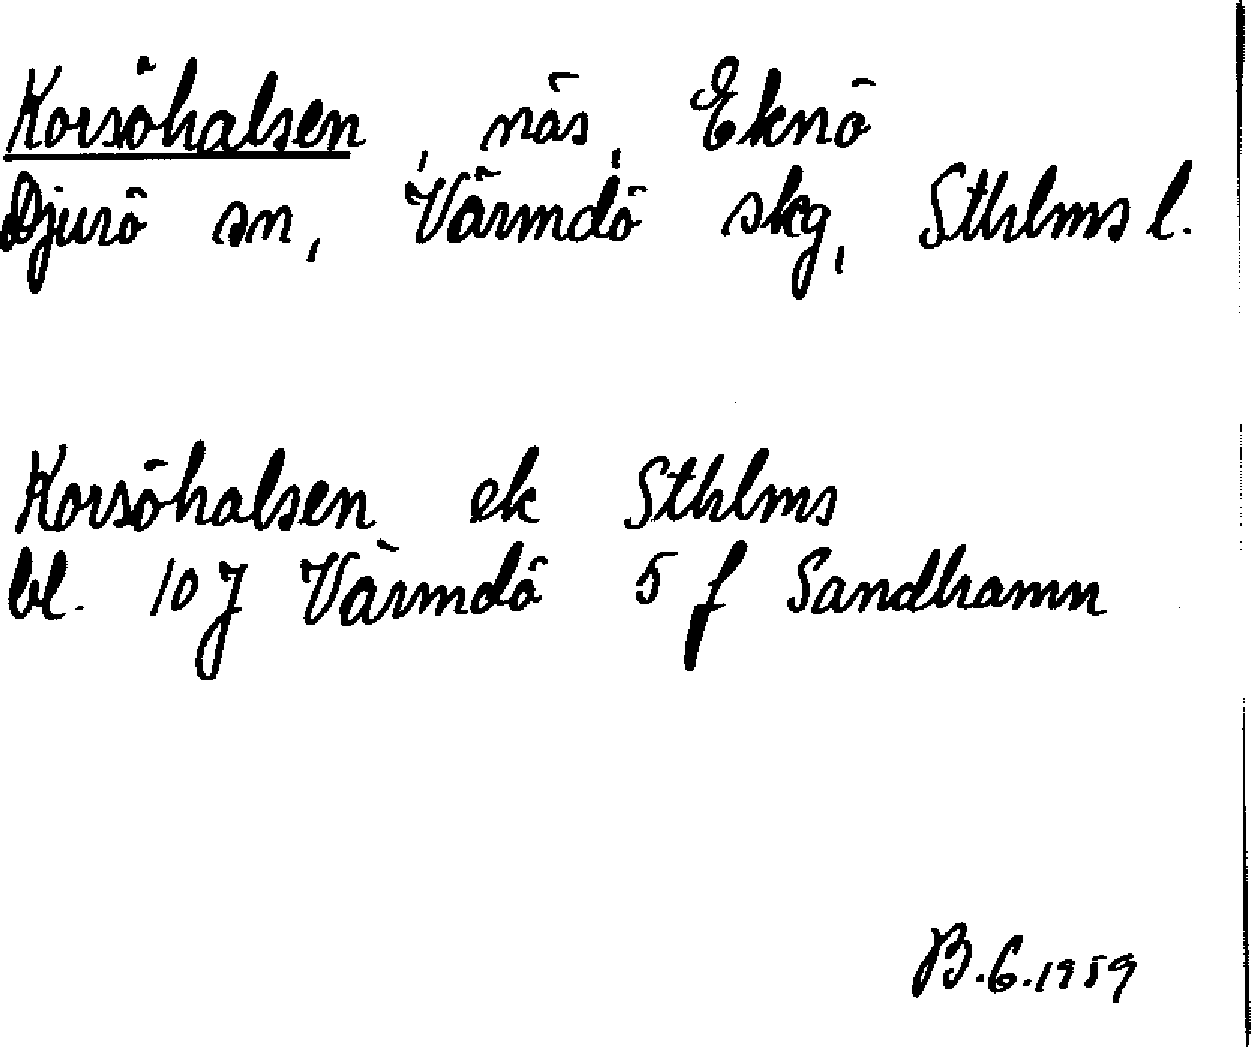 Korsöhalsen, näs, Eknö
Djurö sn, Värmdö skg, Sthlms l.
Korsöhalsen ek Sthlms
bl. 10 J Värmdö 5 f Sandhamn
B.G.1959